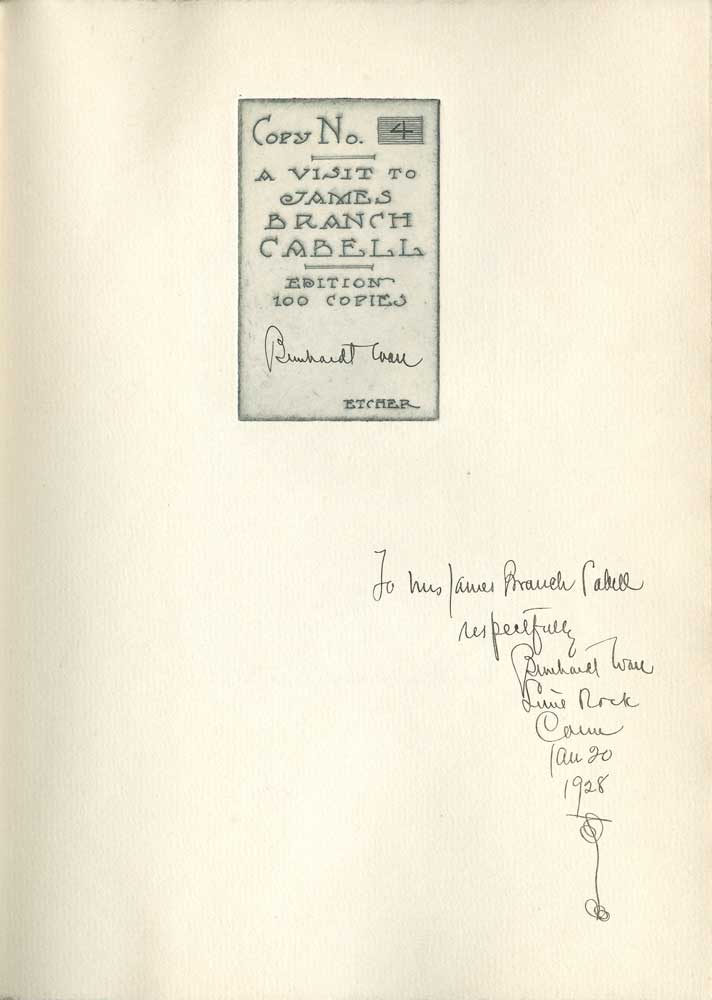 Copy No. 4
A VISIT TO
JAMES
BRANCH
CABELL
EDITION
100 COPIES
Bernhardt Wall
ETCHER
To Mrs James Branch Cabell
respectfully
Bernhardt Wall
Lime Rock
Conn
Jan 20
1928